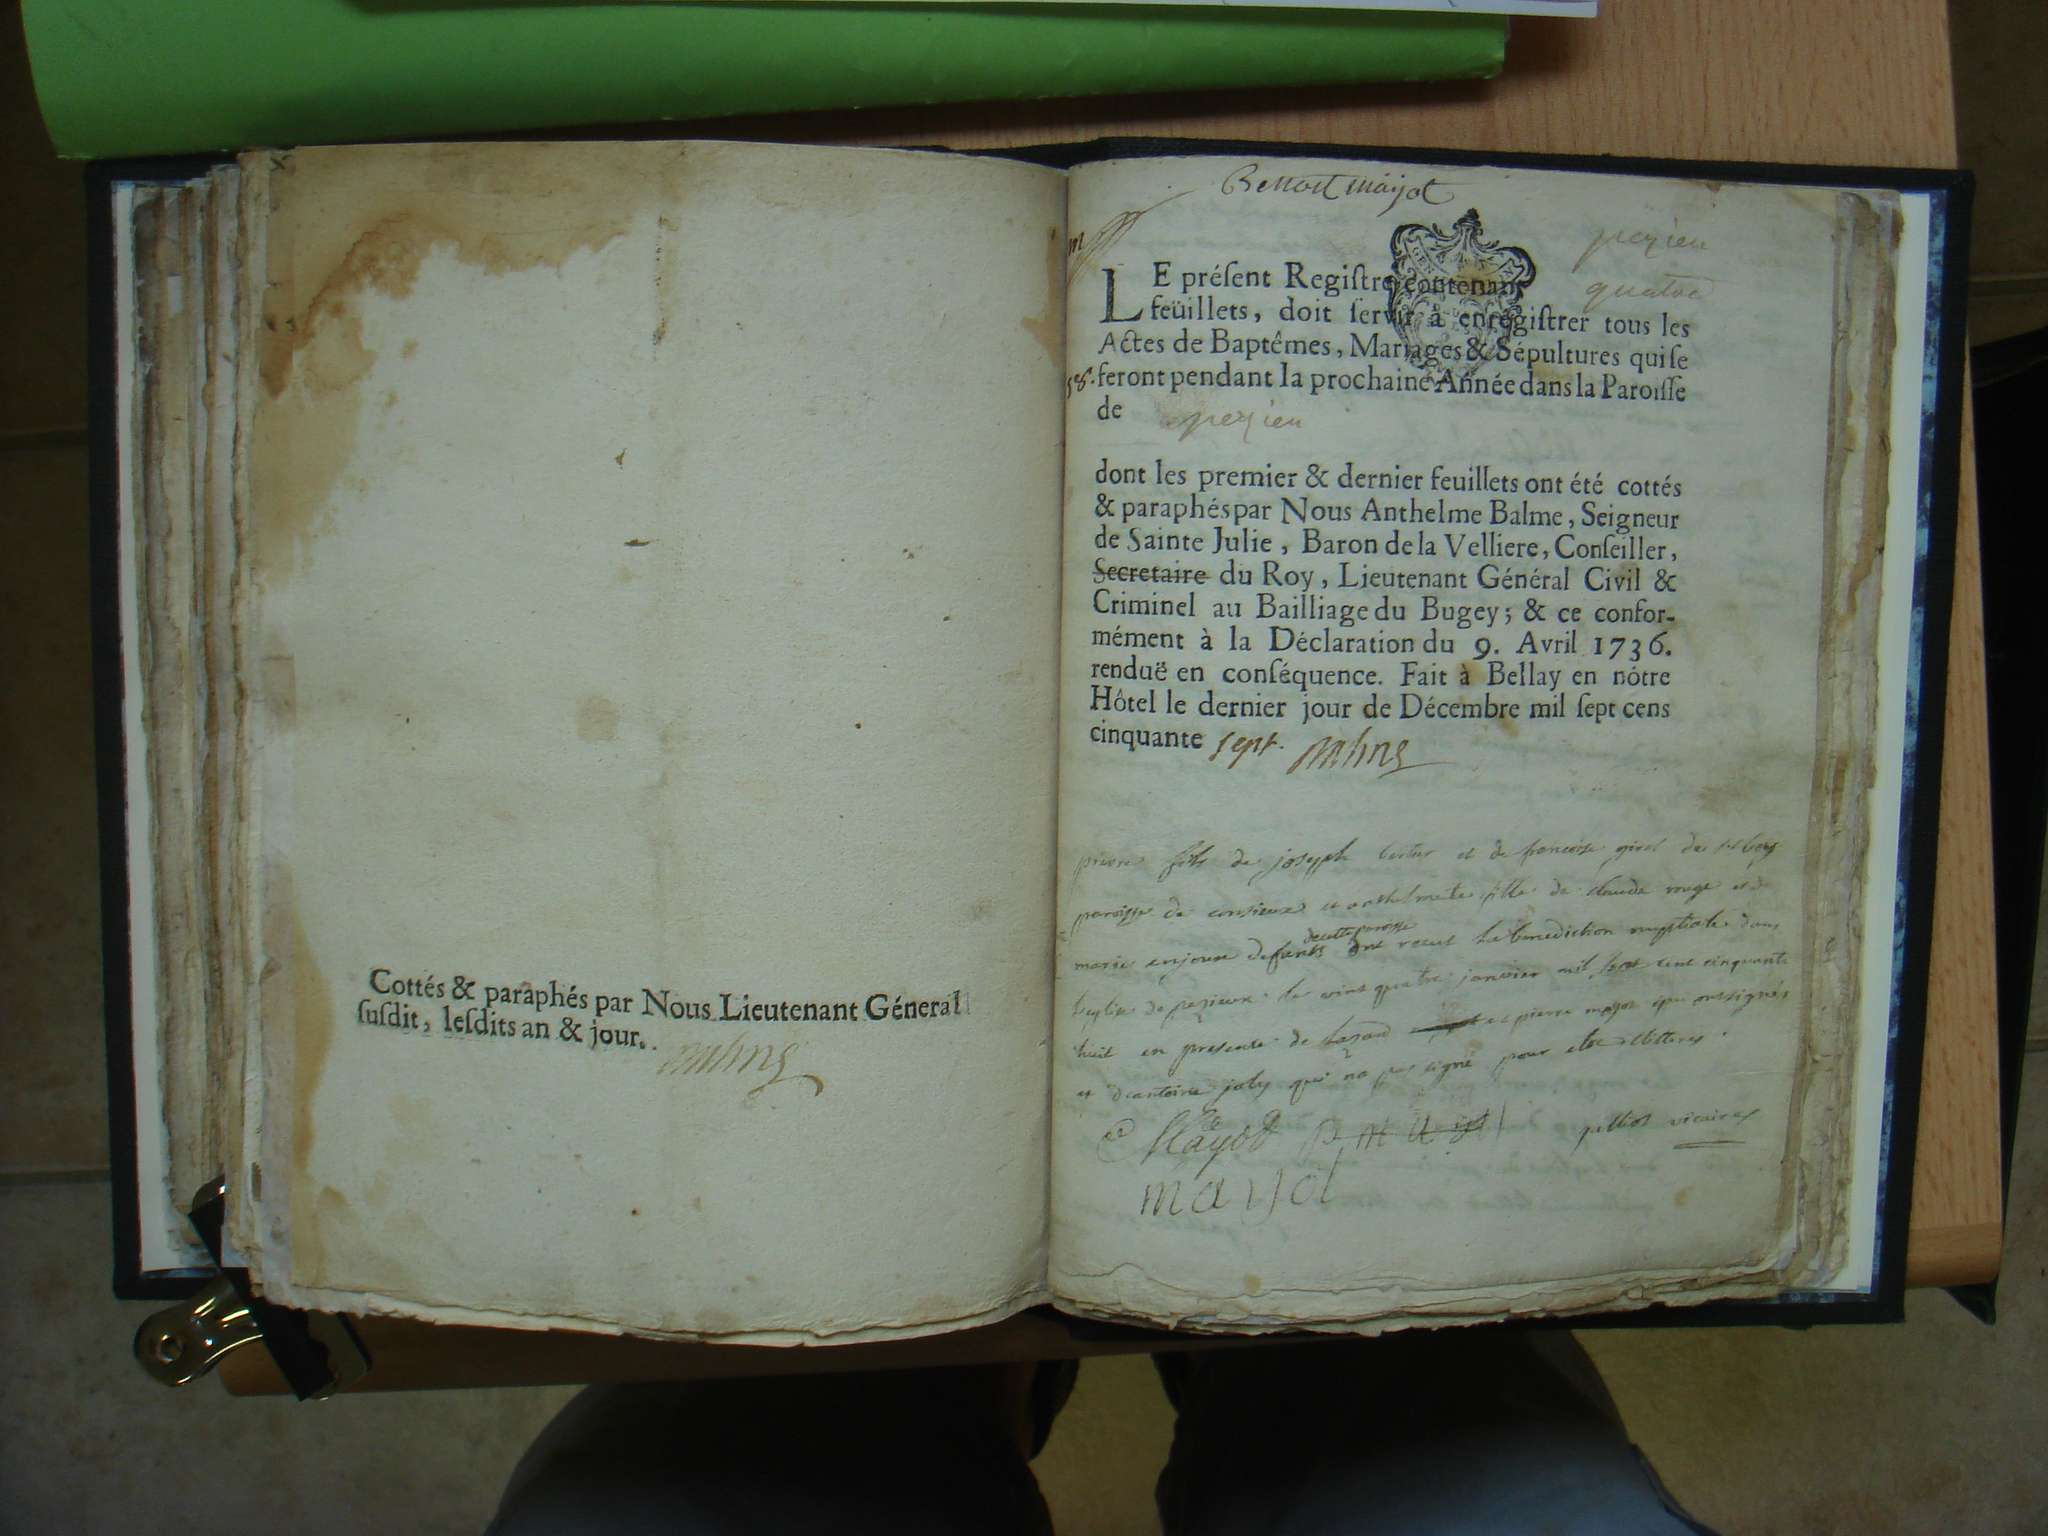 Cottés & paraphés par Nous Lieutenant Géneral
ſuſdit, leſdits an & jour.
Benoit mayot
pezieu
quatre
LE préſent Regiſtre contenant
feüillets, doit ſervir à enregiſtrer tous les
Actes de Baptêmes, Mariages & Sépultures qui ſe
feront pendant la prochaine Année dans la Paroiſſe
de pezieu
dont les premier & dernier feuillets ont été cottés
& paraphés par Nous Anthelme Balme, Seigneur
de Sainte Julie, Baron de la Velliere, Conſeiller,
Secretaire du Roy, Lieutenant Général Civil &
Criminel au Bailliage du Bugey; & ce confor-
mément à la Déclaration du 9. Avril 1736.
renduë en conſéquence. Fait à Bellay en nôtre
Hôtel le dernier jour de Décembre mil ſept cens
cinquante sept.
pierre fils de joseph et de francoise girel de
paroisse de et anthelmette fille de claude rouge et de
marie defunts de cette paroisse ont recut la benediction nuptiale dans
leglise de pezieux le vint quatre janvier mil sept cent cinquante
huit en presence de et pierre mayot qui ont signés
et dantoine joly qui na pas signé pour etre illetteres.
Mayot vicaire
mayot